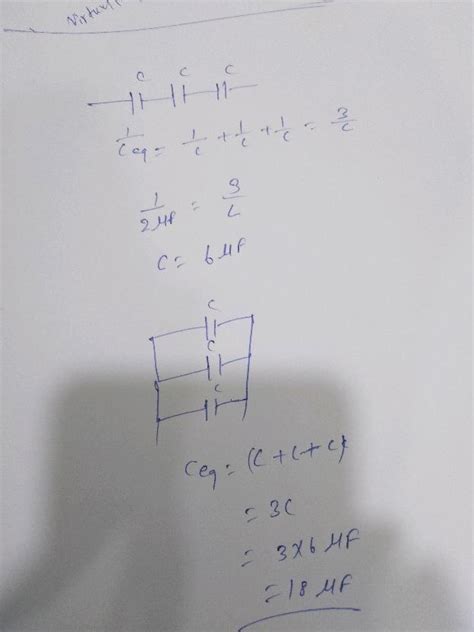 C C C
1/Ceq = 1/C + 1/C + 1/C = 3/C
1/2μF = 3/C
C = 6μF
C
C
C
Ceq = (C + C + C)
= 3C
= 3×6μF
= 18μF